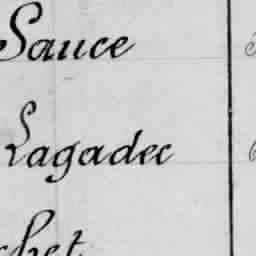 Sauce
Lagadec
chet